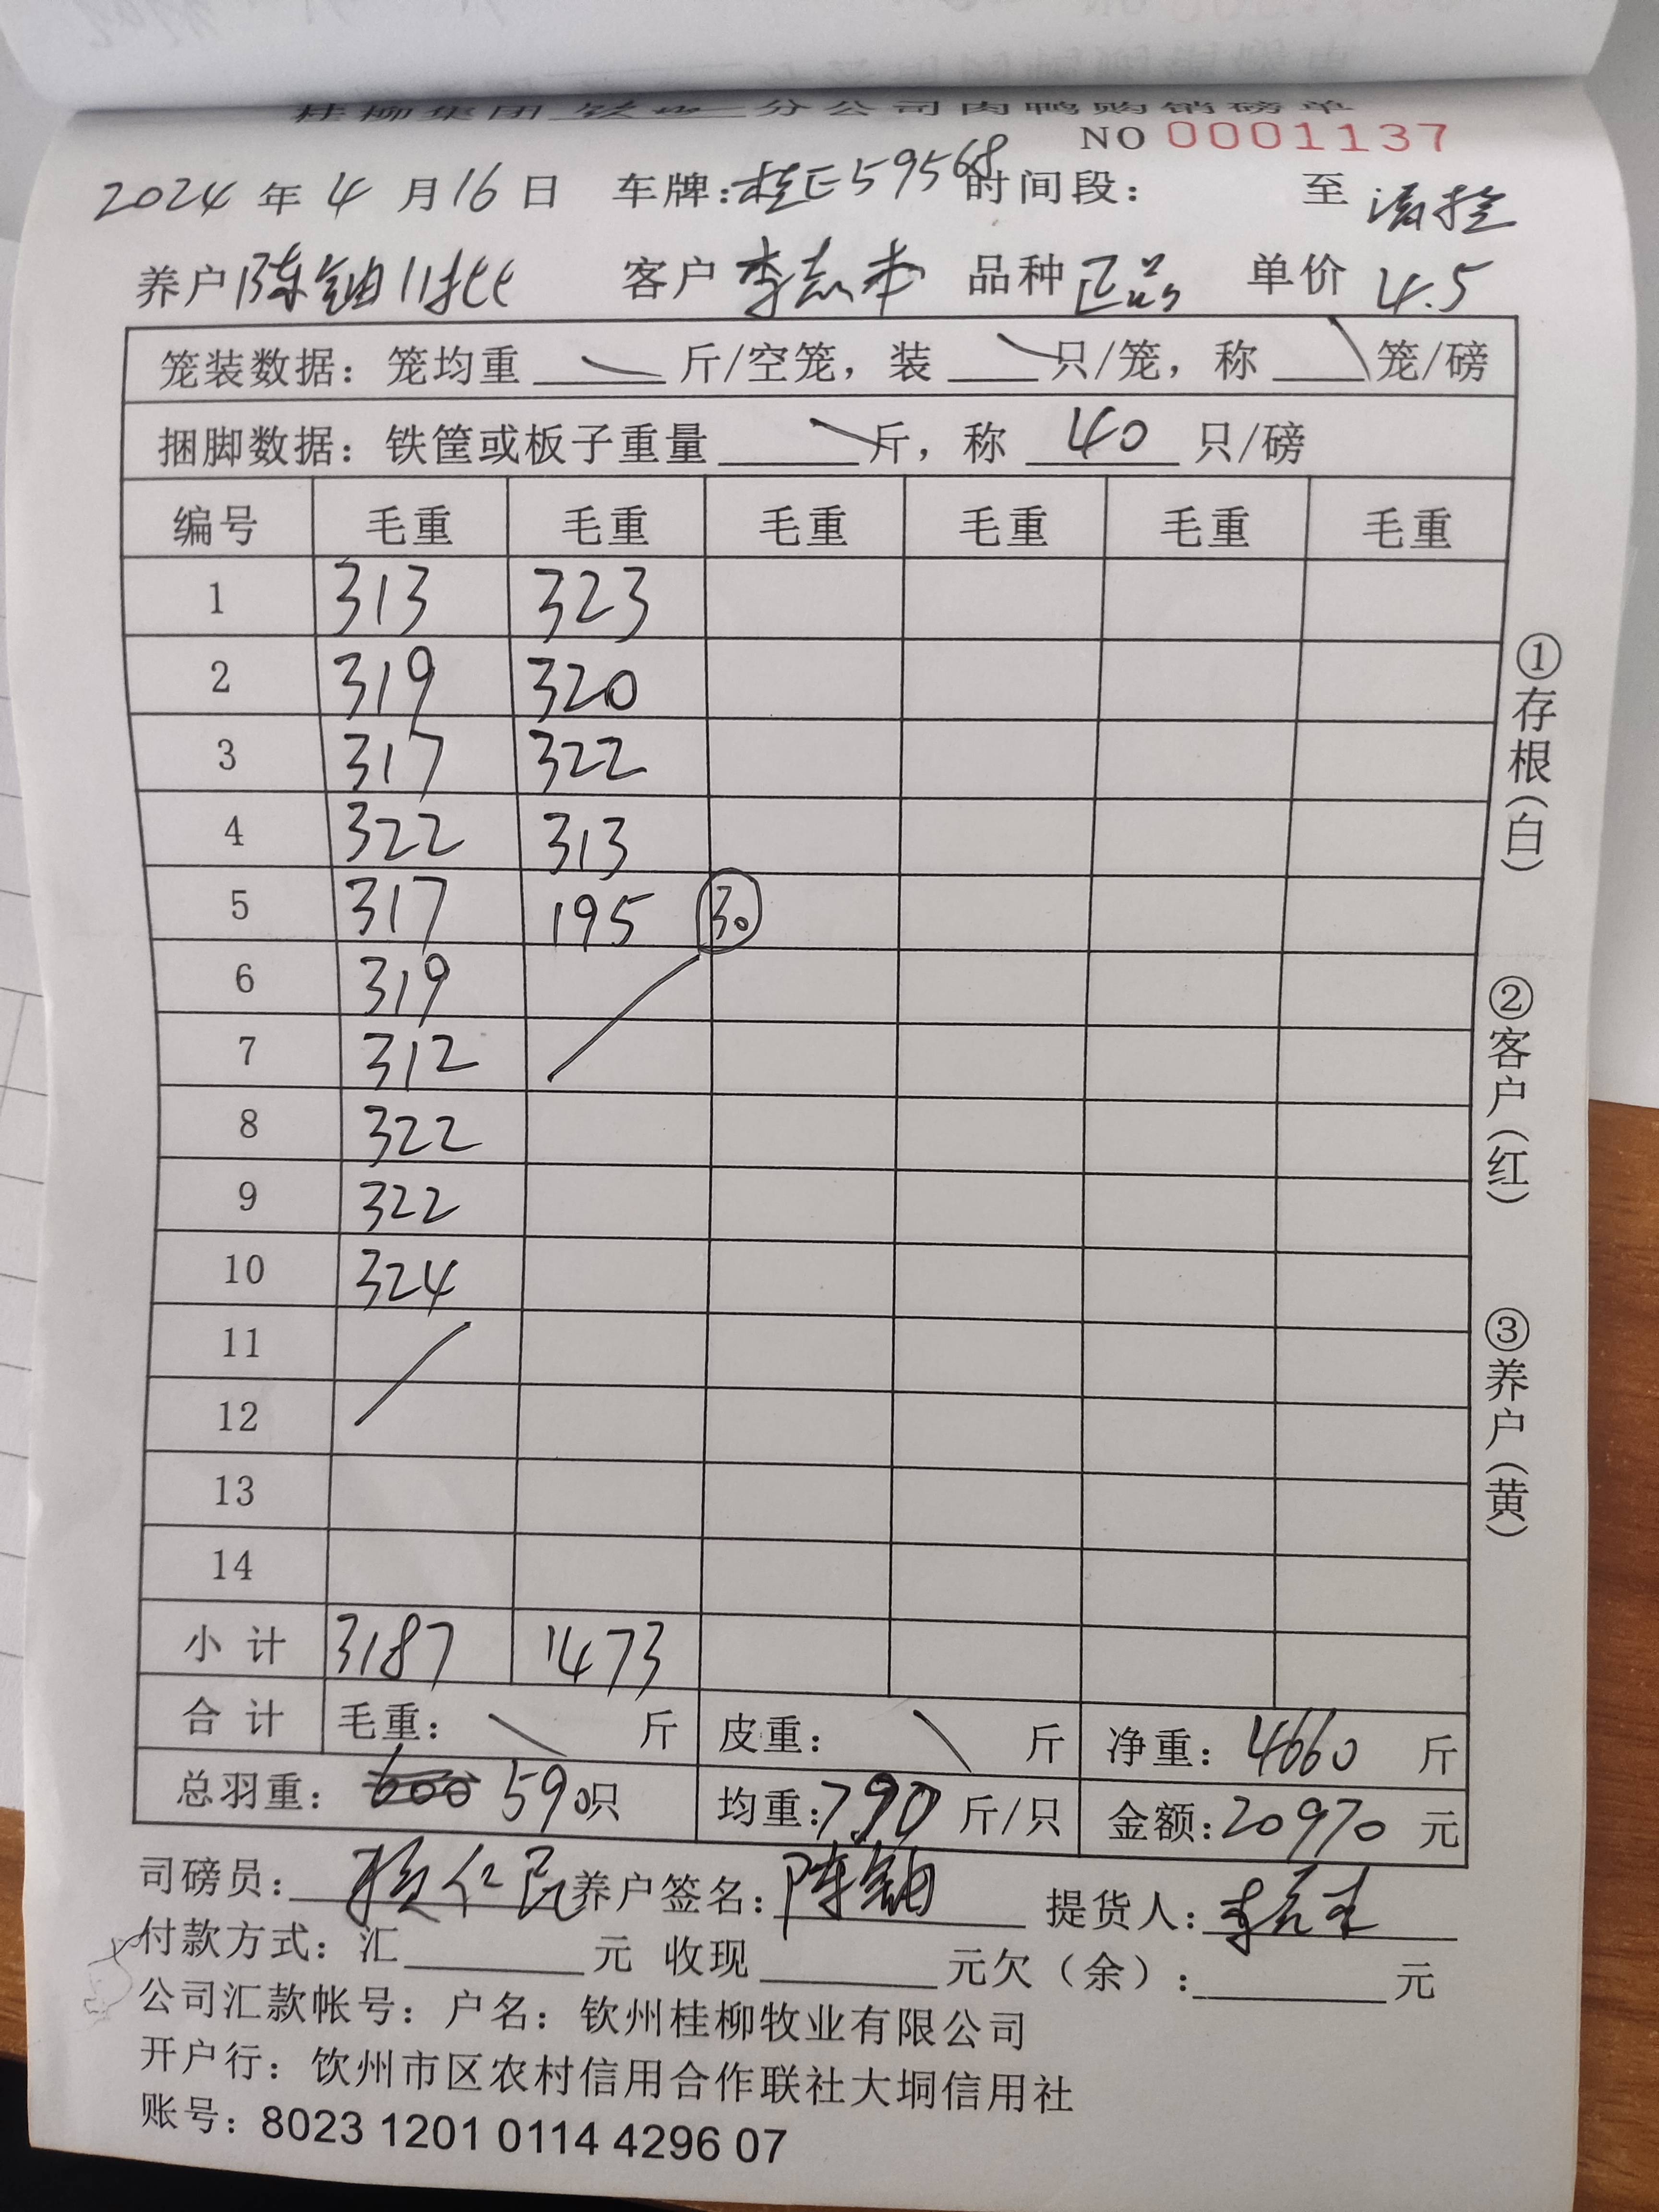 桂柳集团 钦州 分公司肉鸭购销磅单
NO 0001137
2024 年 4 月 16 日 车牌:桂E59568 时间段: 至
养户 陈铀11批 客户 李志本 品种 正品 单价 4.5
笼装数据: 笼均重 斤/空笼, 装 只/笼, 称 笼/磅
捆脚数据: 铁筐或板子重量 斤, 称 40 只/磅
编号 毛重 毛重 毛重 毛重 毛重 毛重
1 313 323
2 319 320
3 317 322
4 322 313
5 317 195 30
6 319
7 312
8 322
9 322
10 324
11
12
13
14
小计 3187 1473
合计 毛重: 斤 皮重: 斤 净重: 4660 斤
总羽重: 600 590只 均重: 7.90 斤/只 金额: 20970 元
司磅员: 养户签名: 陈铀 提货人:
付款方式: 汇 元 收现 元欠(余): 元
公司汇款帐号: 户名: 钦州桂柳牧业有限公司
开户行: 饮州市区农村信用合作联社大垌信用社
账号: 8023 1201 0114 4296 07
①存根(白)
②客户(红)
③养户(黄)